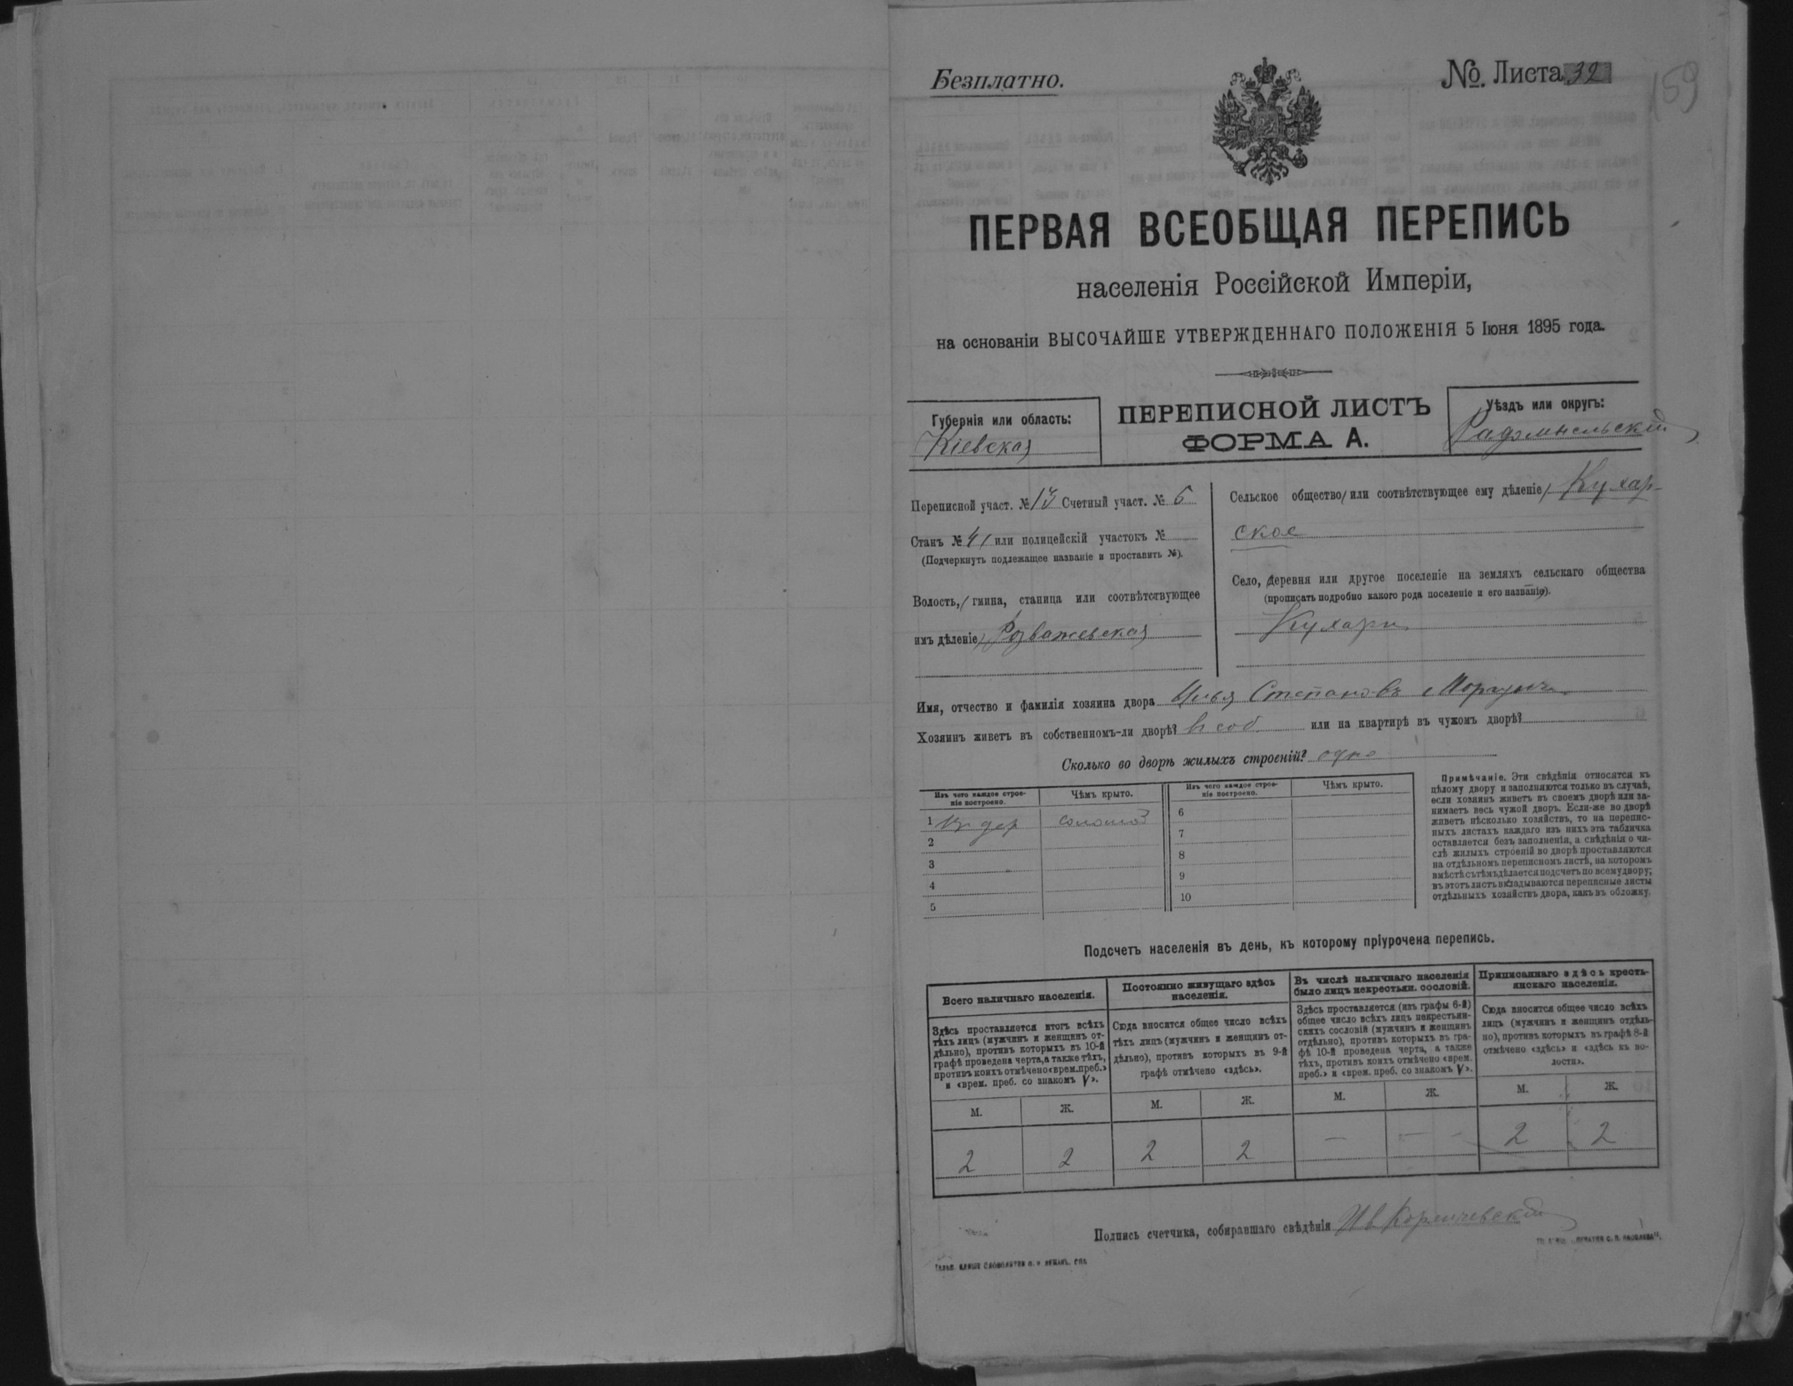 Безплатно.
№ Листа 32
159
ПЕРВАЯ ВСЕОБЩАЯ ПЕРЕПИСЬ
населенія Россійской Имперіи,
на основаніи ВЫСОЧАЙШЕ УТВЕРЖДЕННАГО ПОЛОЖЕНІЯ 5 Іюня 1895 года.
Губернія или область:
Кіевская
ПЕРЕПИСНОЙ ЛИСТЪ
ФОРМА А.
Уѣздъ или округъ:
Радомысльскій
Переписной участ. № 13 Счетный участ. № 6
Станъ № 4 или полицейскій участокъ №
(Подчеркнуть подлежащее названіе и проставить №).
Волость, гмина, станица или соотвѣтствующее
имъ дѣленіе) Розважевская
Сельское общество (или соотвѣтствующее ему дѣленіе) Кухар-
ское
Село, деревня или другое поселеніе на земляхъ сельскаго общества
(прописать подробно какого рода поселеніе и его названіе).
Кухари
Имя, отчество и фамилія хозяина двора Илья Степановъ
Хозяинъ живетъ въ собственномъ-ли дворѣ? в соб или на квартирѣ въ чужомъ дворѣ?
Сколько во дворѣ жилыхъ строеній? одно
Изъ чего каждое строе-
ніе построено.
Чѣмъ крыто.
Изъ чего каждое строе-
ніе построено.
Чѣмъ крыто.
1 из дер соломой
2
3
4
5
6
7
8
9
10
Примѣчаніе. Эти свѣдѣнія относятся къ
цѣлому двору и заполняются только въ случаѣ,
если хозяинъ живетъ въ своемъ дворѣ или за-
нимаетъ весь чужой дворъ. Если-же во дворѣ
живетъ нѣсколько хозяйствъ, то на перепис-
ныхъ листахъ каждаго изъ нихъ эта табличка
оставляется безъ заполненія, а свѣдѣнія о чи-
слѣ жилыхъ строеній во дворѣ проставляются
на отдѣльномъ переписномъ листѣ, на которомъ
вмѣстѣ съ тѣмъ дѣлается подсчетъ по всему двору;
въ этотъ листъ вкладываются переписные листы
отдѣльныхъ хозяйствъ двора, какъ въ обложку.
Подсчетъ населенія въ день, къ которому пріурочена перепись.
Всего наличнаго населенія.
Здѣсь проставляется итогъ всѣхъ
тѣхъ лицъ (мужчинъ и женщинъ от-
дѣльно), противъ которыхъ въ 10-й
графѣ проведена черта, а также тѣхъ,
противъ коихъ отмѣчено «врем. преб.»
и «врем. преб. со знакомъ V».
Постоянно живущаго здѣсь
населенія.
Сюда вносится общее число всѣхъ
тѣхъ лицъ (мужчинъ и женщинъ от-
дѣльно), противъ которыхъ въ 9-й
графѣ отмѣчено «здѣсь».
Въ числѣ наличнаго населенія
было лицъ некрестьян. сословій.
Здѣсь проставляется (изъ графы 6-й)
общее число всѣхъ лицъ некрестьян-
скихъ сословій (мужчинъ и женщинъ
отдѣльно), противъ которыхъ въ гра-
фѣ 10-й проведена черта, а также
тѣхъ, противъ коихъ отмѣчено «врем.
преб.» и «врем. преб. со знакомъ V».
Приписаннаго здѣсь кресть-
янскаго населенія.
Сюда вносится общее число всѣхъ
лицъ (мужчинъ и женщинъ отдѣль-
но), противъ которыхъ въ графѣ 8-й
отмѣчено «здѣсь» и «здѣсь въ во-
лости».
М. Ж. М. Ж. М. Ж. М. Ж.
2 2 2 2 — — 2 2
Подпись счетчика, собиравшаго свѣдѣнія Ив